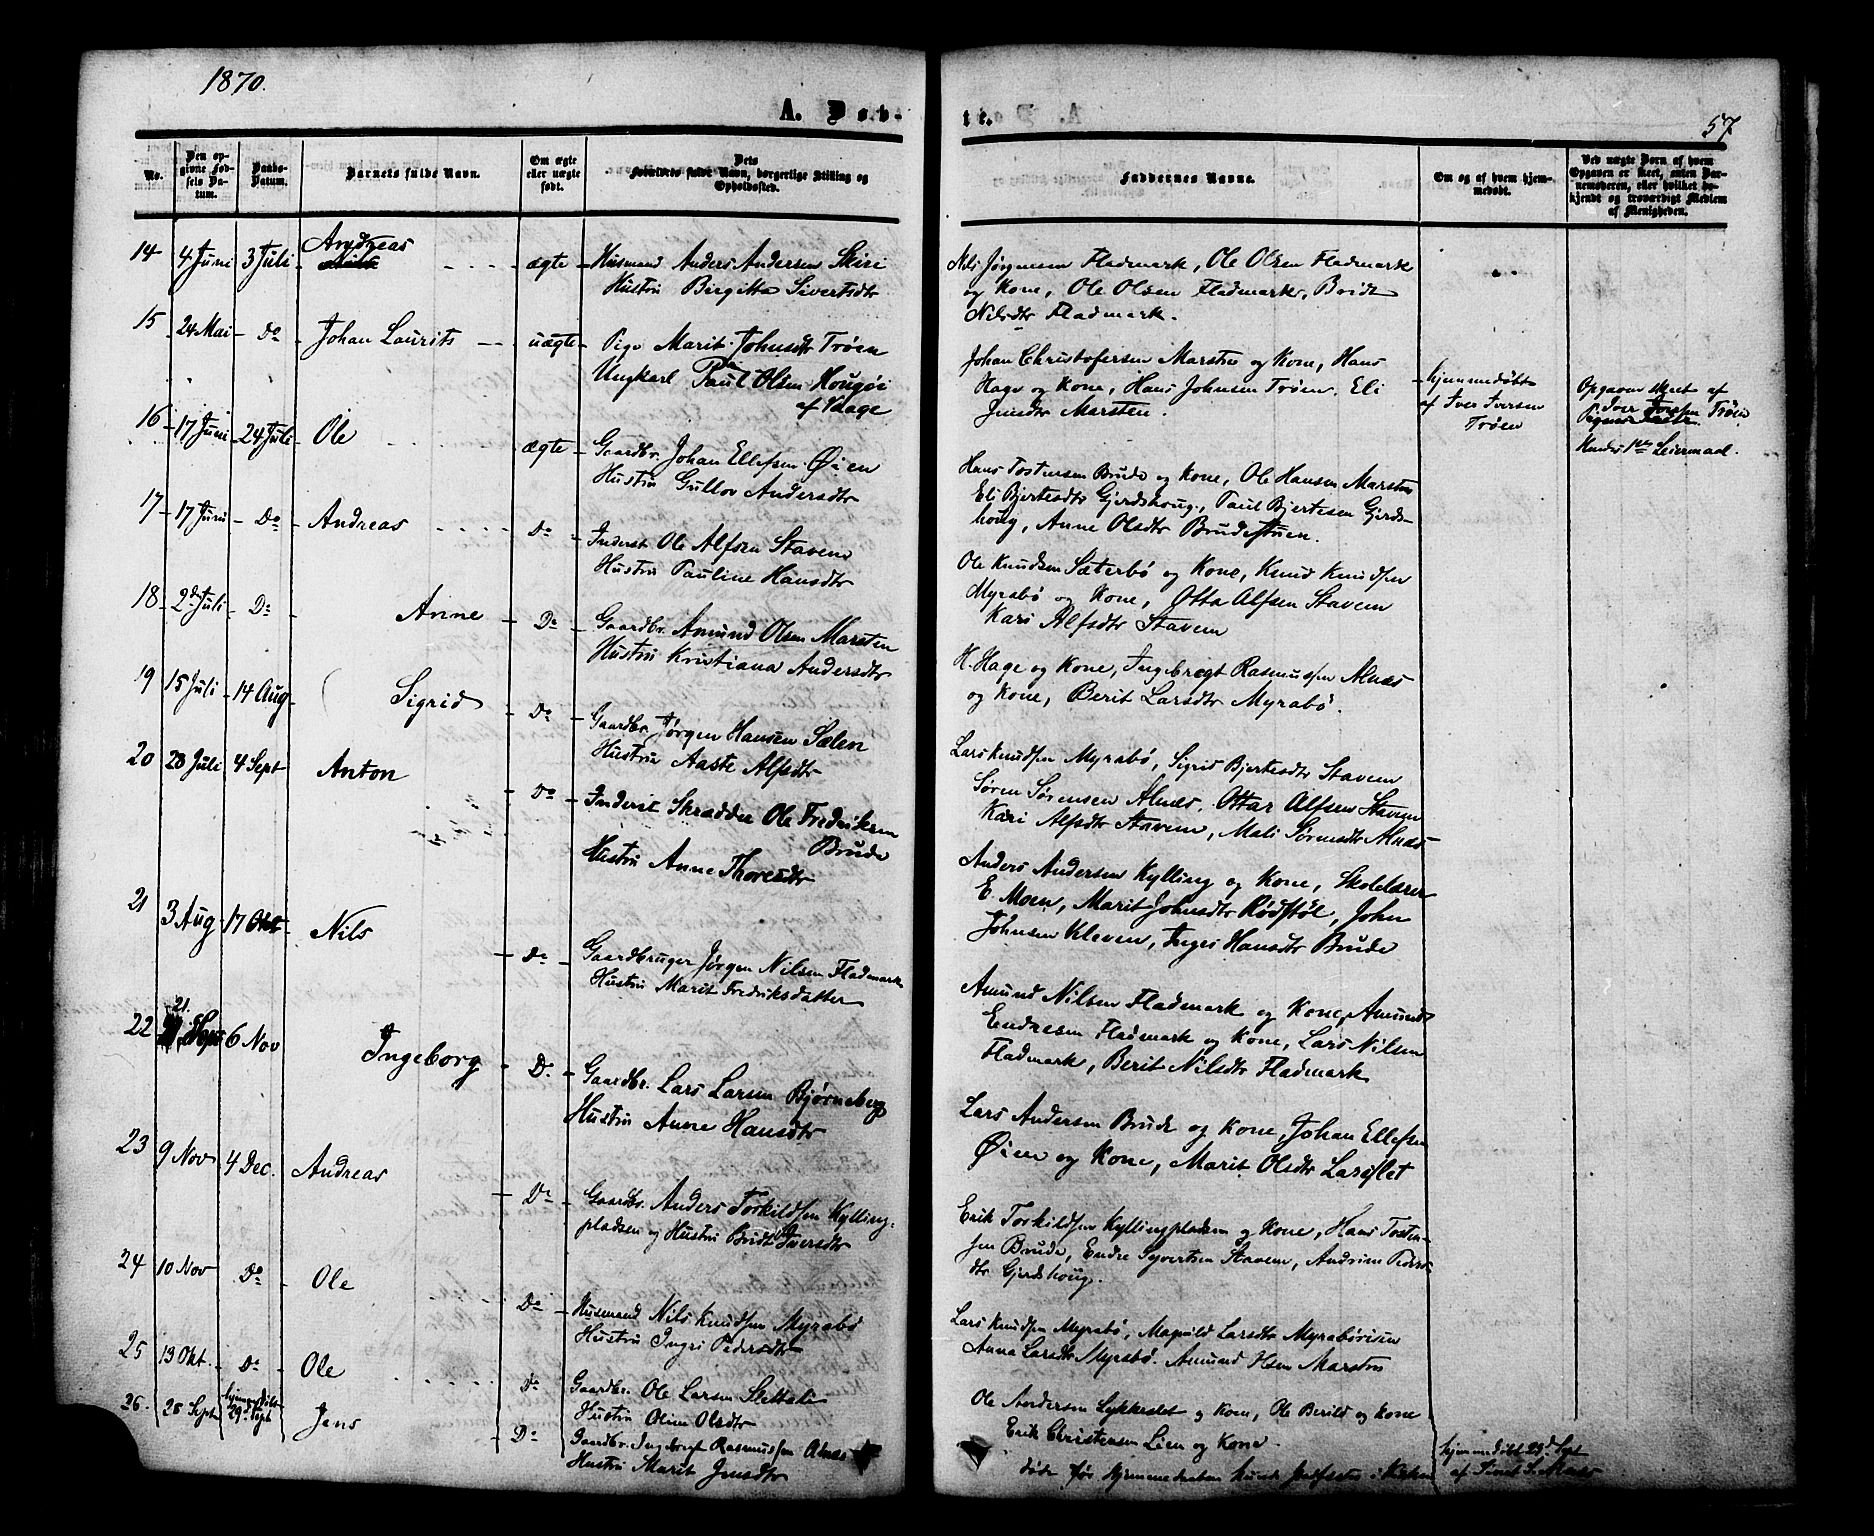 1870.
57
A. Døb-
te.
No.
Den opgivne Fødsels Datum.
Daabs-Datum.
Barnets fulde Navn.
Om ægte eller uægte født.
Forældres fulde Navn, borgerlige Stilling og Opholdssted.
Faddernes Navne.
Om og af hvem hjemmedøbt.
Ved uægte Børn af hvem Opgaven er skeet, enten Barnemoderen, eller hvilket bekjendt og troværdigt Medlem af Menigheden.
14 4 Juni 3 Juli Andreas ægte Husmand Anders Andersen Skiri
Hustru Birgitta Sivertsdtr
Nils Jørgensen Fladmark, Ole Olsen Fladmark
og Kone, Ole Olsen Fladmark, Bridt
Nilsdtr Fladmark.
15 24 Mai Do Johan Laurits uægte Pige Marit Johnsdtr Trøen
Ungkarl Paul Olsen Hougøi
af Vaage
Johan Christofersen Marsten og Kone, Hans
Hage og Kone, Hans Johnsen Trøen, Eli
Jensdtr Marsten.
hjemmedøbt
af Iver Iversen
Trøen
Opgaven skeet af
Iver Trøen
Hendes 1ste Leiermaal.
16 17 Juni 24 Juli Ole ægte Gaardbr. Johan Ellefsen Øien
Hustru Gullov Andersdtr
Hans Tostensen Brude og Kone, Ole Hansen Marsten
Eli Bjertesdtr Gjerdshoug, Paul Bjertesen Gjerds-
houg, Anne Olsdtr Brudestuen.
17 17 Juni Do Andreas Do Inderst Ole Alfsen Stavem
Hustru Pauline Hansdtr
Ole Knudsen Sæterbø og Kone, Knud Knudsen
Myrabø og Kone, Otta Alfsen Stavem
Kari Alfsdtr Stavem
18 2d Juli Do Anne Do Gaardbr. Amund Olsen Marsten
Hustru Kristiana Andersdtr
H. Hage og Kone, Ingebregt Rasmussen Alnæs
og Kone, Berit Larsdtr Myrabø.
19 15 Juli 14 Aug Sigrid Do Gaardbr. Jørgen Hansen Sælen
Hustru Aaste Alfsdtr
Lars Knudsen Myrabø, Sigrid Bjertesdtr Stavem
Søren Sørensen Alnæs, Ottar Alfsen Stavem
Kari Alfsdtr Stavem, Mali Sørensdtr Alnæs
20 28 Juli 4 Sept Anton Do Inderst Skrædder Ole Fredriksen
Brude
Hustru Anne Thoresdtr
Anders Andersen Kylling og Kone, Skolelærer
E. Moen, Marit Johnsdtr Rødstøl, John
Johnsen Kleven, Inger Hansdtr Brude
21 3 Aug 17 Okt Nils Do Gaardbruger Jørgen Nilsen Fladmark
Hustru Marit Fredriksdatter
Amund Nilsen Fladmark og Kone, Amund
Endresen Fladmark og Kone, Lars Nilsen
Fladmark, Berit Nilsdtr Fladmark
22 21. Sept 6 Nov Ingeborg Do Gaardbr. Lars Larsen Bjørneberg
Hustru Anne Hansdtr
Lars Andersen Brude og Kone, Johan Ellefsen
Øien og Kone, Marit Olsdtr
23 9 Nov 4 Dec. Andreas Do Gaardbr. Anders Torkildsen Kylling-
pladsen og Hustru Bridt Iversdtr
Erik Torkildsen Kyllingpladsen og Kone, Hans Tosten-
sen Brude, Endre Syvertsen Stavem, Andrine Peders-
dtr Gjerdshoug.
24 10 Nov Do Ole Do Husmand Nils Knudsen Myrabø
Hustru Ingri Pedersdtr
Lars Knudsen Myrabø, Magnild Larsdtr
Anne Larsdtr Myrabø. Amund Marsten
25 13 Okt. Do Ole Do Gaardbr. Ole Larsen Slettali
Hustru Oline Olsdtr
Ole Andersen Lykkeslet og Kone, Ole Berild og Kone
Erik Christensen Lien og Kone.
26. 28 Sept hjemmedøbt
29d Sept Jens Do Gaardbr. Ingebregt Rasmussen Alnæs
Hustru Marit Jensdtr
døde før Hjemmedaaben kunde i Kirken
hjemmedøbt 29d Sept
af S. Alnæs